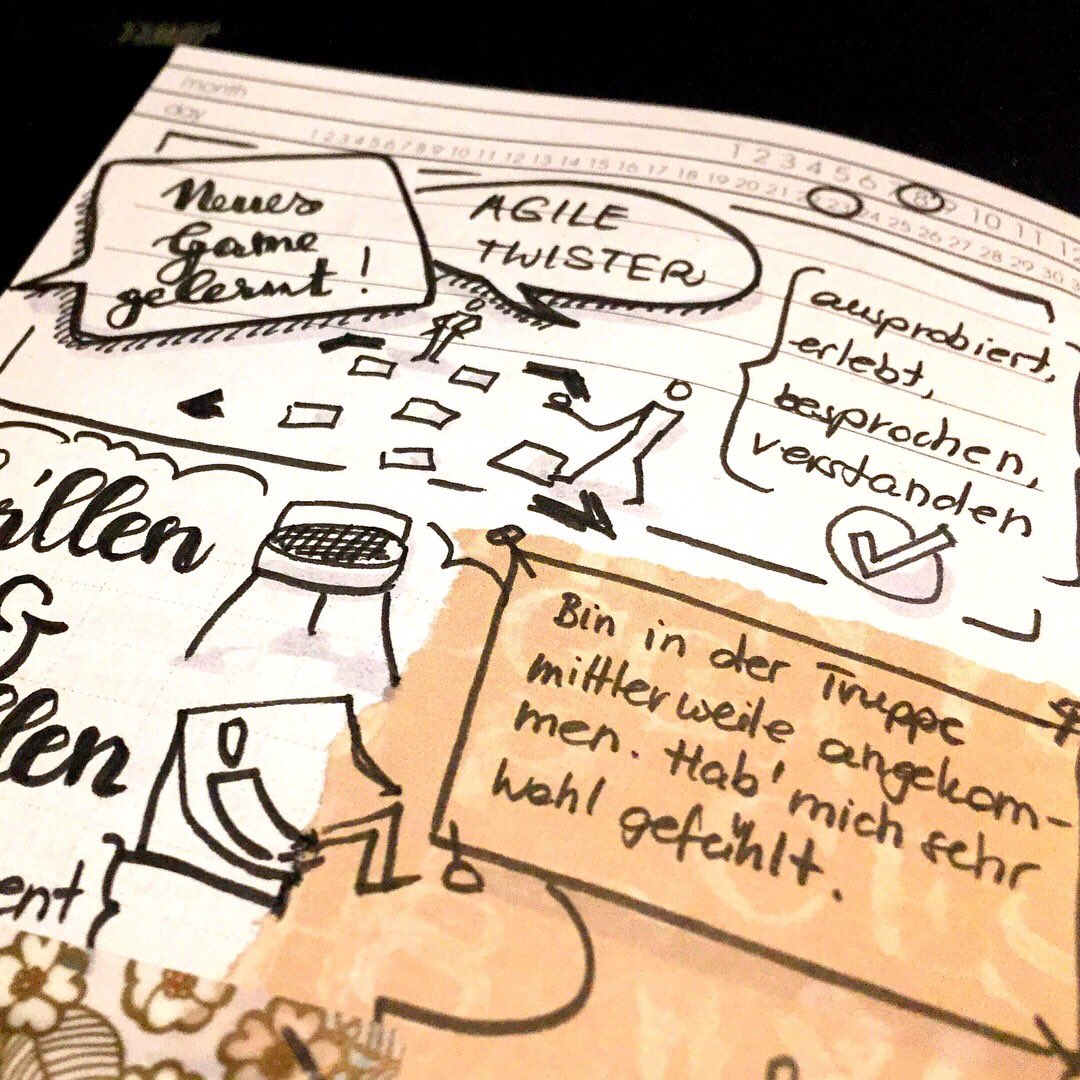 month
day
1 2 3 4 5 6 7 8 9 10 11 12
1 2 3 4 5 6 7 8 9 10 11 12 13 14 15 16 17 18 19 20 21 23 24 25 26 27 28 29 30
Neues
Game
gelernt!
AGILE
TWISTER
ausprobiert,
erlebt,
besprochen,
verstanden
illen
&
llen
ent
Bin in der Truppe
mittlerweile angekom-
men. Hab' mich sehr
wohl gefühlt.